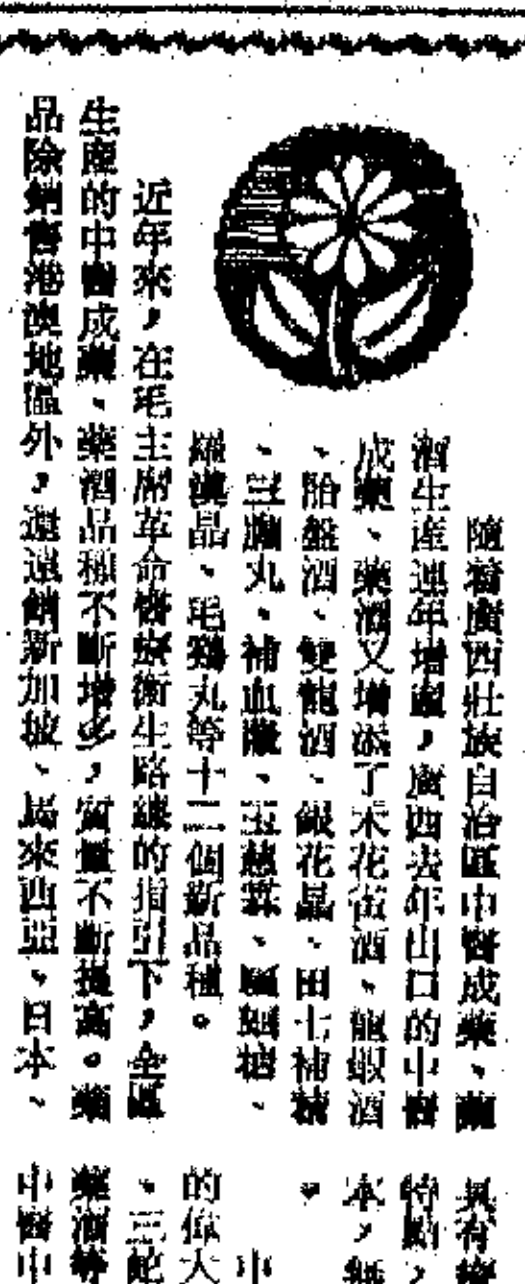 隨着廣西壯族自治區中醫成藥、藥
酒生產連年增產,廣西去年出口的中醫
成藥、藥酒又增添了木花茴酒、龍蝦酒
、胎盤酒、雙龍酒、銀花晶、田七補精
、三蛇丸、補血
羅漢晶、毛鷄丸等十二個新品種。
近年來,在毛主席革命醫療衛生路線的指引下,全區
生產的中醫成藥、藥酒品種不斷增多,質量不斷提高。藥
品除銷售港澳地區外,還遠銷新加坡、馬來西亞、日本、
具有
特點,
本,無
。
中
的偉大
、三蛇
藥酒等
中醫中